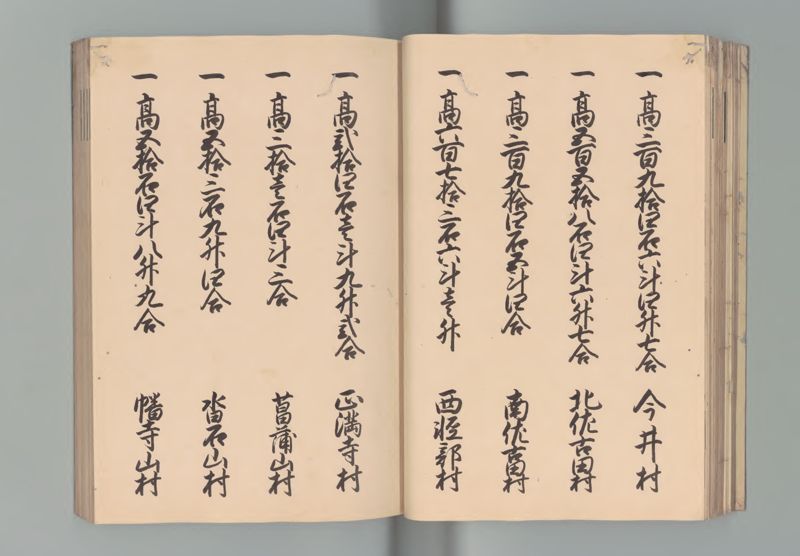 一高三百九拾四石六斗四升七合 今井村
一高五百五拾八石四斗六升七合 北佐古田村
一高三百九拾四石五斗四合 南佐古田村
一高六百七拾三石六斗壱升 西短部村
一高弐拾四石壱斗九升弐合 正満寺村
一高三拾壱石四斗三合 菖蒲山村
一高五拾三石九升四合 沓石山村
一高五拾石四斗八升九合 幡寺山村